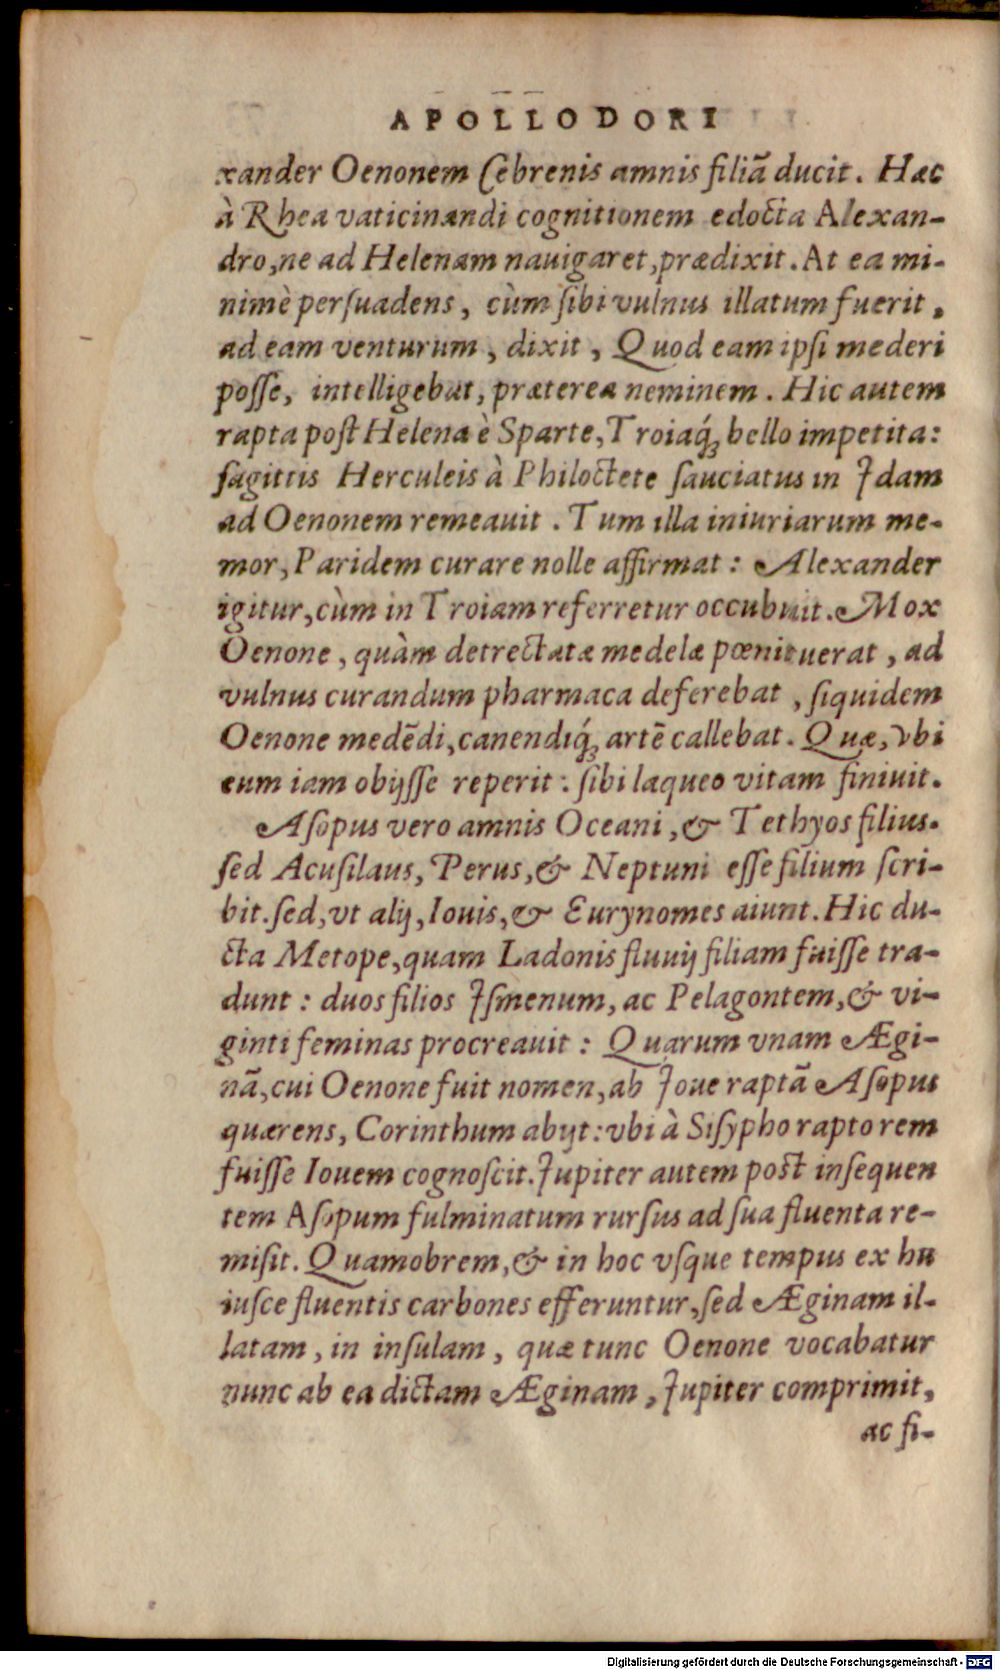 APOLLODORI
xander Oenonem Cebrenis amnis filiã ducit. Hæc
à Rhea vaticinandi cognitionem edocta Alexan-
dro, ne ad Helenam nauigaret, prædixit. At ea mi-
nimè persuadens, cùm sibi vulnus illatum fuerit,
ad eam venturum, dixit, Quod eam ipsi mederi
posse, intelligebat, præterea neminem. Hic autem
rapta post Helena è Sparte, Troiaq́; bello impetita:
sagittis Herculeis à Philoctete sauciatus in Idam
ad Oenonem remeauit. Tum illa iniuriarum me-
mor, Paridem curare nolle affirmat: Alexander
igitur, cùm in Troiam referretur occubuit. Mox
Oenone, quàm detrectatæ medelæ pœnituerat, ad
vulnus curandum pharmaca deferebat, siquidem
Oenone medẽdi, canendiq́; artẽ callebat. Quæ, vbi
eum iam obijsse reperit: sibi laqueo vitam finiuit.
Asopus vero amnis Oceani, & Tethyos filius.
sed Acusilaus, Perus, & Neptuni esse filium scri-
bit. sed, vt alij, Iouis, & Eurynomes aiunt. Hic du-
cta Metope, quam Ladonis fluuij filiam fuisse tra-
dunt: duos filios Ismenum, ac Pelagontem, & vi-
ginti feminas procreauit: Quarum vnam Ægi-
nã, cui Oenone fuit nomen, ab Ioue raptã Asopus
quærens, Corinthum abijt: vbi à Sisypho raptorem
fuisse Iouem cognoscit. Iupiter autem post insequen
tem Asopum fulminatum rursus ad sua fluenta re-
misit. Quamobrem, & in hoc vsque tempus ex hu
iusce fluentis carbones efferuntur, sed Æginam il-
latam, in insulam, quæ tunc Oenone vocabatur
nunc ab ea dictam Æginam, Iupiter comprimit,
ac fi-
Digitalisierung gefördert durch die Deutsche Forschungsgemeinschaft - DFG